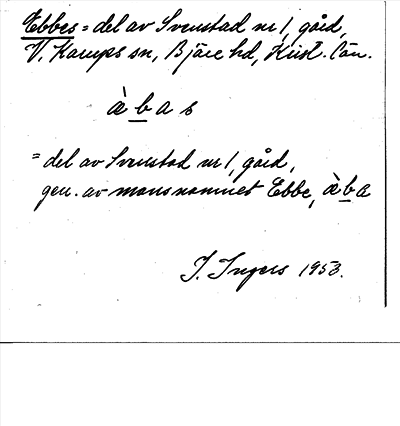 Ebbes = del av Svenstad nr 1, gård,
V. Karups sn, Bjäre hd, Krist. län.
à b a s
= del av Svenstad nr 1, gård,
gen. av mansnamnet Ebbe, à b a
I. Ingers 1953.